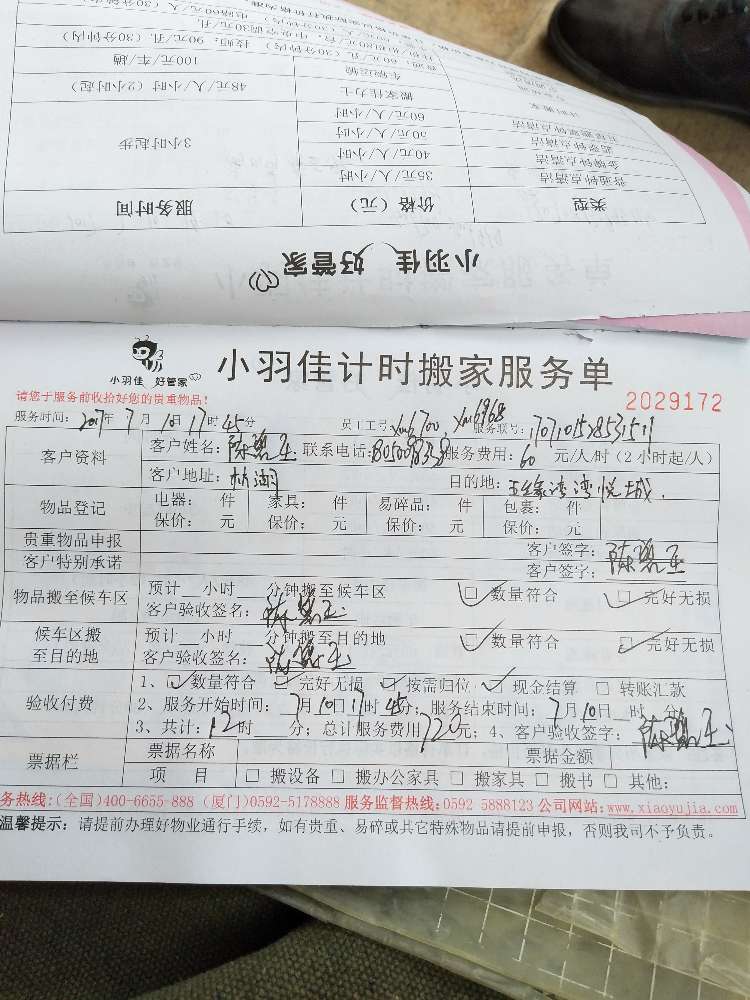 小羽佳 好管家
类型 价格（元） 服务时间
普通钟点清洁 35元/人/小时 3小时起步
金牌钟点清洁 40元/人/小时
50元/人/小时
60元/人/小时
搬家壮力士 48元/人/小时 （2小时起）
车辆运输 100元/车/趟
小羽佳 好管家
小羽佳计时搬家服务单
请您于服务前收拾好您的贵重物品!
2029172
服务时间: 2017年 7 月 10日17时 45分 员工工号: xm6700 xm6968 服务联号:
客户资料 客户姓名: 陈碧玉 联系电话: 服务费用: 60 元/人/时 (2小时起/人)
客户地址: 目的地: 五缘湾湾悦城
物品登记 电器: 件 家具: 件 易碎品: 件 包裹: 件
保价: 元 保价: 元 保价: 元 保价: 元
贵重物品申报 客户签字: 陈碧玉
客户特别承诺 客户签字:
物品搬至候车区 预计__小时___分钟搬至候车区 □ 数量符合 □ 完好无损
客户验收签名: 陈碧玉
候车区搬至目的地 预计__小时___分钟搬至目的地 □ 数量符合 □ 完好无损
客户验收签名: 陈碧玉
验收付费 1、□ 数量符合 □ 完好无损 □ 按需归位 □ 现金结算 □ 转账汇款
2、服务开始时间: 7月10日17时45分; 服务结束时间: 7月10日__时__分;
3、共计: 12时___分; 总计服务费用720元; 4、客户验收签字: 陈碧玉
票据栏 票据名称 票据金额
项 目 □ 搬设备 □ 搬办公家具 □ 搬家具 □ 搬书 □ 其他:
务热线:(全国)400-6655-888 (厦门)0592-5178888 服务监督热线:0592 5888123 公司网站:www.xiaoyujia.com
温馨提示: 请提前办理好物业通行手续，如有贵重、易碎或其它特殊物品请提前申报，否则我司不予负责。